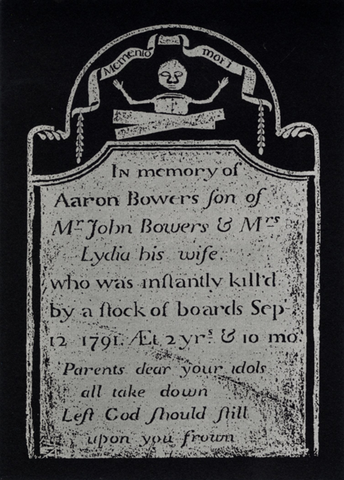 Memento mori
In memory of
Aaron Bowers ſon of
Mr John Bowers & Mrs
Lydia his wife.
who was inſtantly kill'd
by a ſtock of boards Sep'
12 1791. Æt 2 yrs & 10 mo.
Parents dear your idols
all take down
Leſt God ſhould ſtill
upon you frown